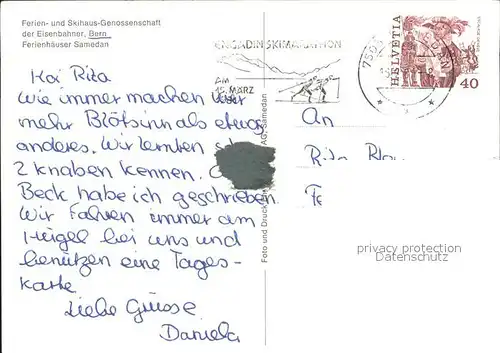 Ferien- und Skihaus-Genossenschaft
der Eisenbahner, Bern
Ferienhäuser Samedan
ENGADIN SKIMARATHON
AM
15. MÄRZ
HELVETIA
40
Hoi Rita
Wie immer machen wir
mehr Blötsinn als etwas
anderes. Wir lernten
2 Knaben kennen.
Beck habe ich geschrieben.
Wir Fahren immer am
Hügel bei uns und
benützen eine Tages-
karte
Liebe Grüsse
Daniela
Foto und Druck AG, Samedan
An
Rita
privacy protection
Datenschutz